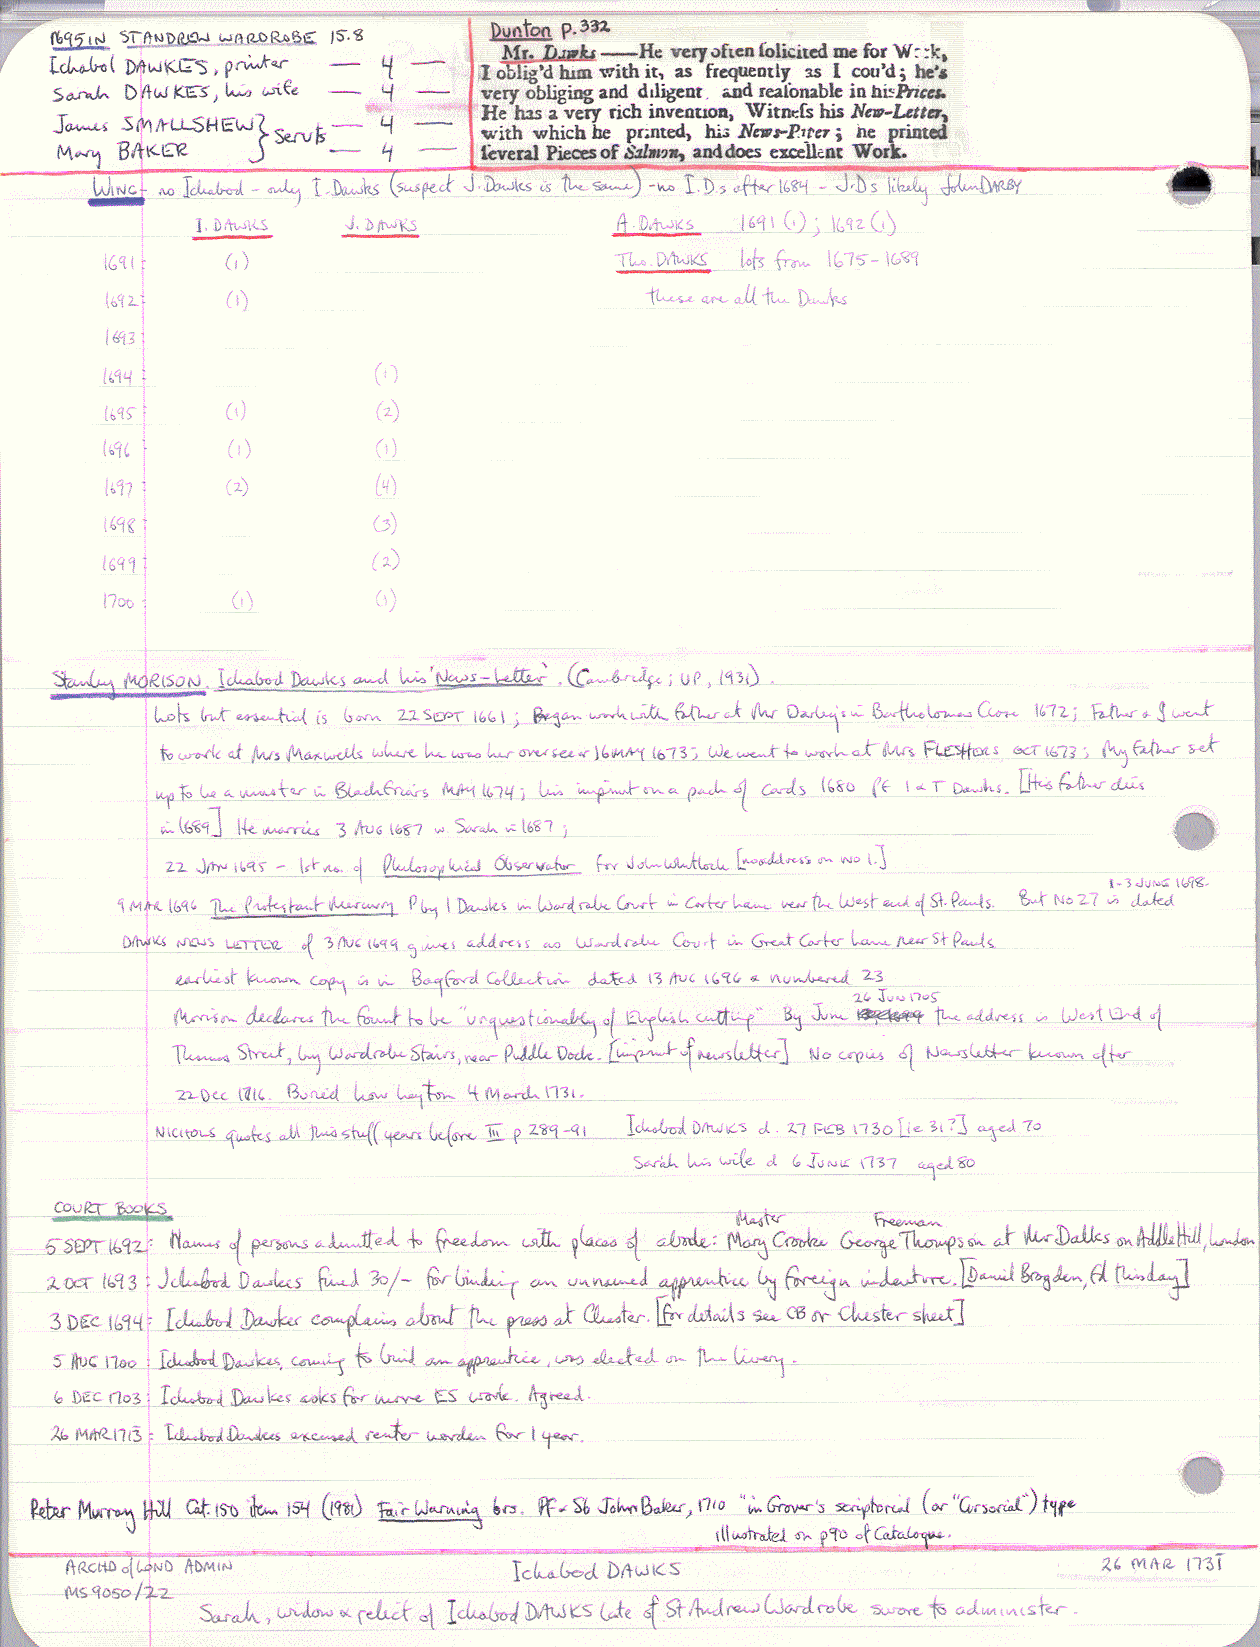 1695 IN ST ANDREW WARDROBE 15.8
Ichabol DAWKES, printer — 4 —
Sarah DAWKES, his wife — 4 —
James SMALLSHEW } Servts — 4 —
Mary BAKER — 4 —
Dunton p.332
Mr. Dawks — He very often solicited me for W::k,
I oblig'd him with it, as frequently as I cou'd; he's
very obliging and diligent, and reasonable in his Prices.
He has a very rich invention, Witness his New-Letter,
with which he printed, his News-Paper; he printed
several Pieces of Salmon, and does excellent Work.
WING - no Ichabod - only I. Dawks (suspect J. Dawks is the same) - no I.D.s after 1684 - J.Ds likely John DARBY
I. DAWKS J. DAWKS A. DAWKS 1691 (1); 1692 (1)
1691 (1) Tho. DAWKS lots from 1675-1689
1692 (1) these are all the Dawks
1693
1694 (1)
1695 (1) (2)
1696 (1) (1)
1697 (2) (4)
1698 (3)
1699 (2)
1700 (1) (1)
Stanley MORISON. Ichabod Dawks and his 'News-Letter'. (Cambridge; UP, 1931).
Lots but essential is born 22 SEPT 1661; Began work with father at Mr Darby's in Bartholomew Close 1672; Father & I went
to work at Mrs Maxwells where he was her overseer 16 MAY 1673; We went to work at Mrs FLESHERS OCT 1673; My father set
up to be a master in Blackfriars MAY 1674; his imprint on a pack of cards 1680 Pf I & T Dawks. [His father dies
in 1689] He marries 3 AUG 1687 w. Sarah in 1687;
22 JAN 1695 - 1st no. of Philosophical Observator for John Whitlock [no address on no 1.]
9 MAR 1696 The Protestant Mercury P by I Dawks in Wardrobe Court in Carter Lane near the West end of St. Pauls. But No 27 is dated 1-3 JUNE 1698.
DAWKS NEWS LETTER of 3 AUG 1699 gives address as Wardrobe Court in Great Carter Lane near St Pauls
earliest known copy is in Bagford Collection dated 13 AUG 1696 & numbered 23
Morison declares the fount to be "unquestionably of English cutting" By June 26 JUN 1705 the address is West End of
Thames Street, by Wardrobe Stairs, near Puddle Dock. [imprint of newsletter] No copies of Newsletter known after
22 Dec 1716. Buried Low Leyton 4 March 1731.
NICHOLS quotes all this stuff years before III p 289-91 Ichabod DAWKS d. 27 FEB 1730 [ie 31?] aged 70
Sarah his wife d 6 JUNE 1737 aged 80
COURT BOOKS
Master Freeman
5 SEPT 1692: Names of persons admitted to freedom with places of abode: Mary Crooke George Thompson at Mr Dakks on Addle Hill, London
2 OCT 1693: Ichabod Dawkes fined 30/- for binding an unnamed apprentice by foreign indenture. [Daniel Brogden, fd this day]
3 DEC 1694: Ichabod Dawker complains about the press at Chester. [for details see CB or Chester sheet]
5 AUG 1700: Ichabod Dawkes, coming to bind an apprentice, was elected on the livery.
6 DEC 1703: Ichabod Dawkes asks for more ES work. Agreed.
26 MAR 1713: Ichabod Dawkes excused renter warden for 1 year.
Peter Murray Hill Cat. 150 item 154 (1981) Fair Warning brs. Pf - Sb John Baker, 1710 "in Grover's scriptorial (or "Cursorial") type
illustrated on p90 of Catalogue.
ARCHD of LOND ADMIN Ichabod DAWKS 26 MAR 1731
MS 9050/22
Sarah, widow & relict of Ichabod DAWKS late of St Andrew Wardrobe swore to administer.